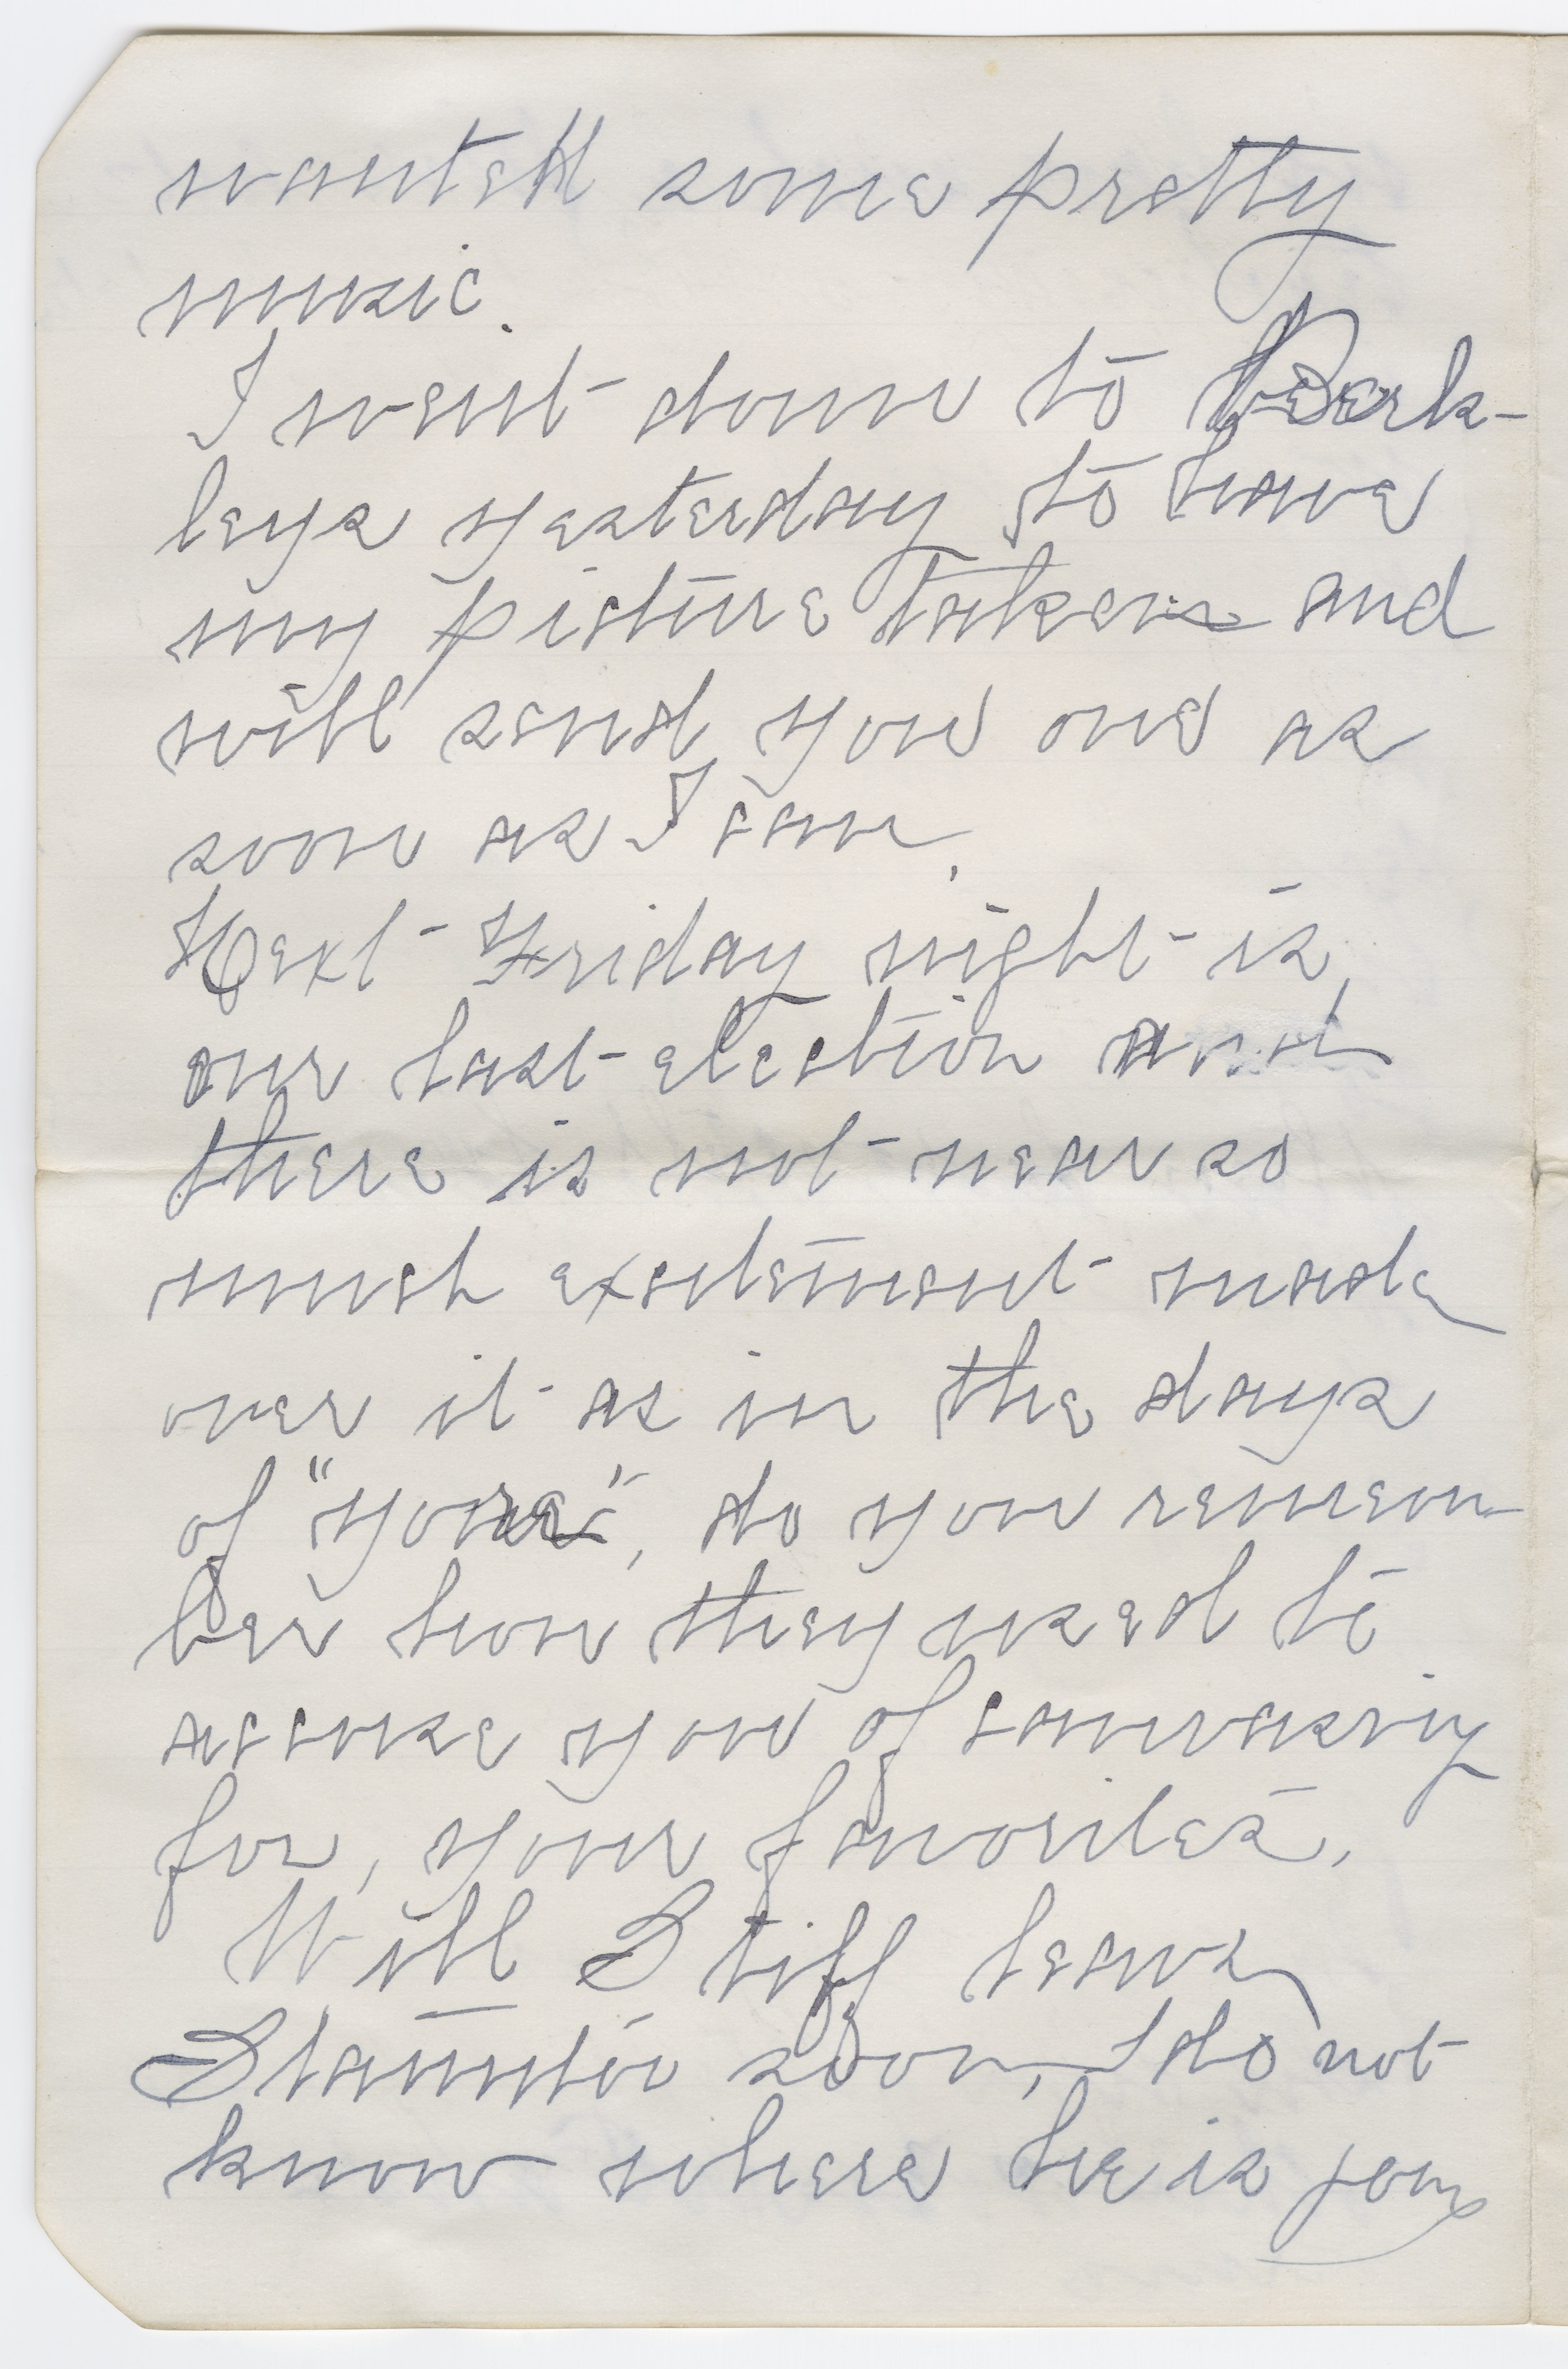 wanted some pretty
music.
I went down to Berk-
leys yesterday to have
my picture taken and
will send you one as
soon as I can.
Next Friday night is
our last election and
there is not near so
much excitement made
over it as in the days
of "yore", do you remem-
ber how they used to
accuse you of canvasing
for, your favorites.
Will Stiff leaves
Staunton soon, I do not
know where he is going